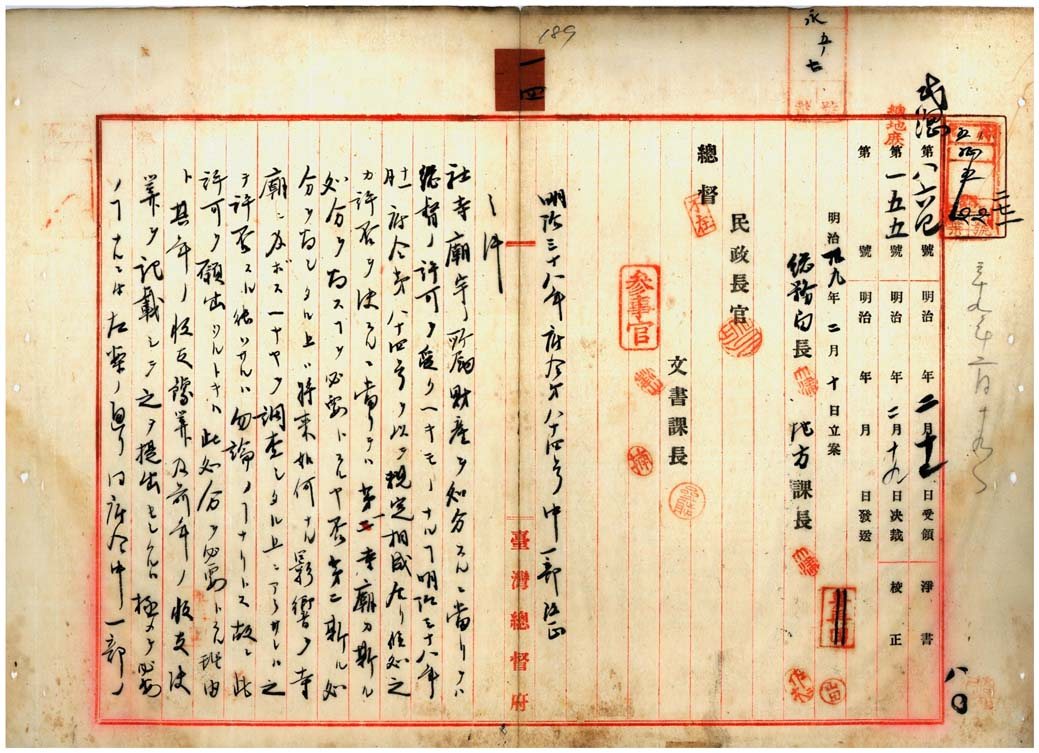 189
一四
永五ノ七
總地庶
第八六七號 明治 年二月十七日受領 淨書
第一五五號 明治 年二月十九日決裁 校正
第 號 明治 年 月 日發送
明治卅九年二月十日立案
總務局長 地方課長
總督
不在
民政長官
參事官
文書課長
明治三十八年府令第八十四号中一部改正
ノ件
社寺廟宇所属財産ヲ処分スルニ當リテハ
総督ノ許可ヲ受クヘキモノナル丁明治三十八年
十一月府令第八十四号ヲ以テ規定相成居リ候処之
カ許否ヲ決スルニ當リテハ第一寺廟カ斯ル
処分ヲ為ス丁ヲ必要トスルヤ否第二斯ル処
分ヲ為シタル上ハ将来如何ナル影響ヲ寺
廟ニ及ボスヘキヤヲ調査シタル上ニアラサレハ之
ヲ許否スル能ハサルハ勿論ノ丁ナリトス故ニ此
許可ヲ願出ツルトキハ此処分ヲ必要トスル理由
ト其年ノ收支豫算及前年ノ收支決
算ヲ記載シテ之ヲ提出セシムルハ極メテ必要
ノ丁ナルニ付左案ノ通リ同府令中一部ノ
臺灣總督府